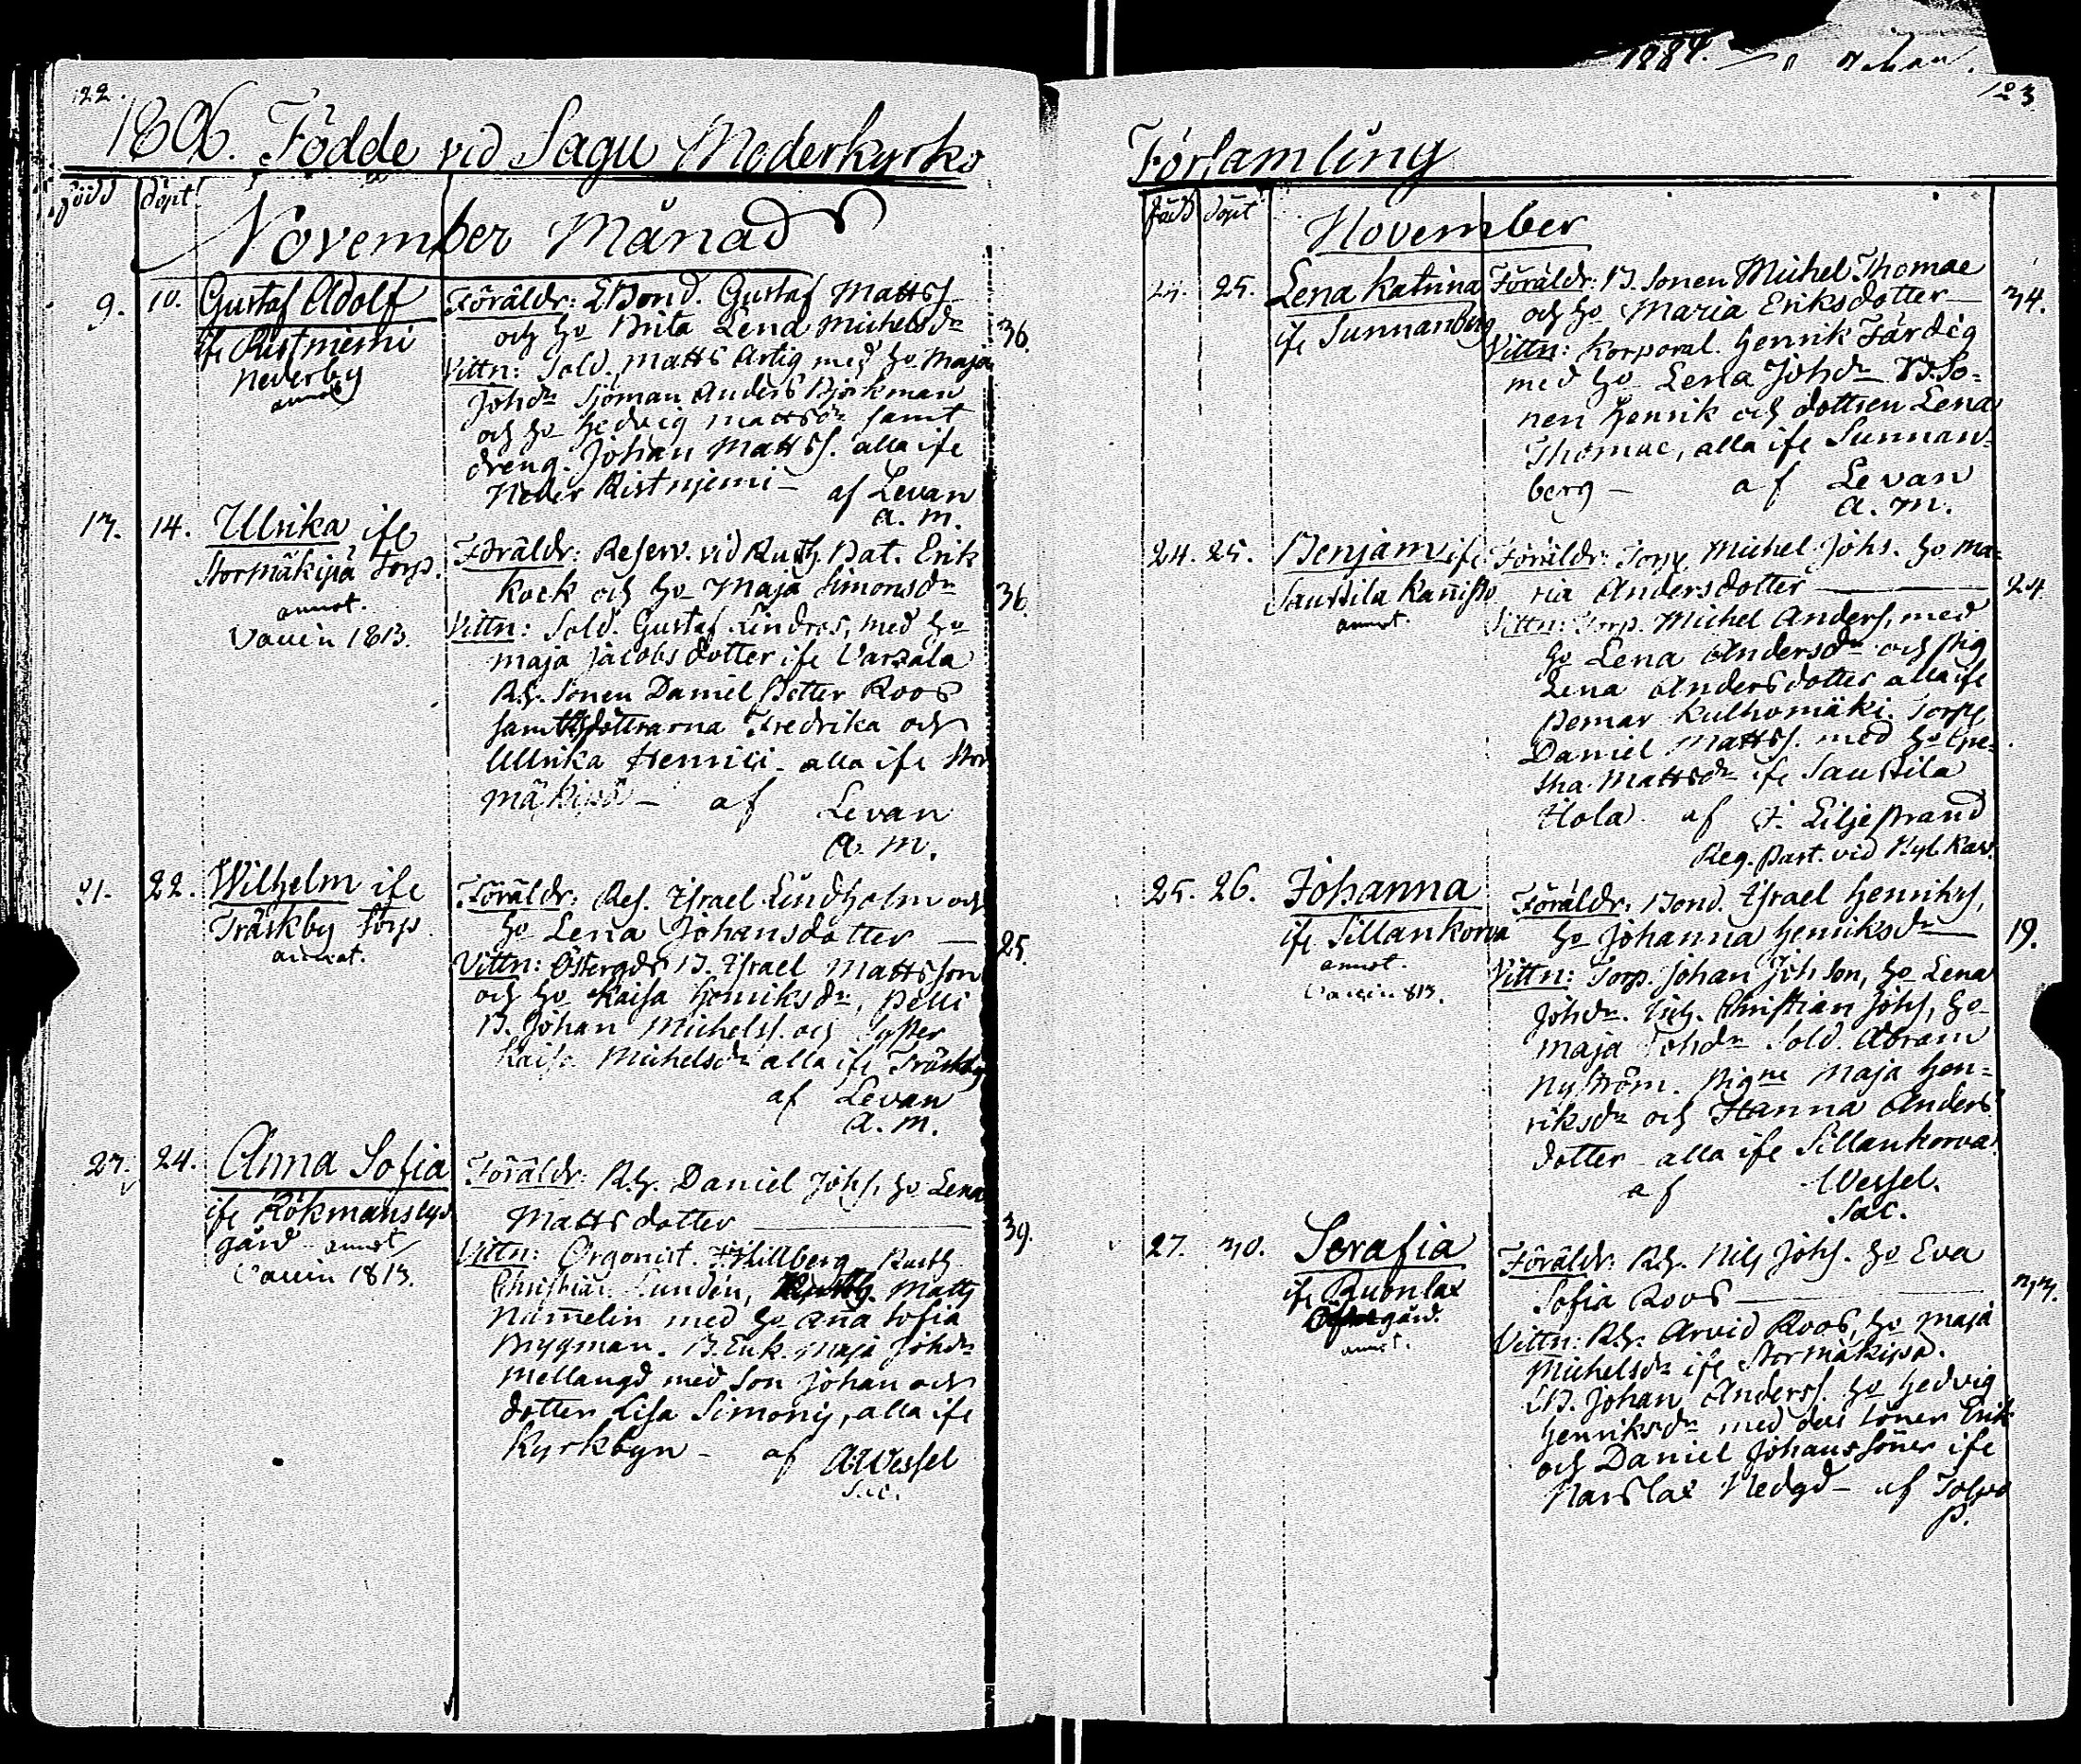 122.
1806. Födde vid Sagu Moderkyrko
född döpt
November Månad
9. 10. Gustaf Adolf
ifr Ristniemi
Nederby
annot
Föräldr: Bond. Gustaf Mattss.
och ho Brita Lena Michelsdr
36.
Vittn: Sold. Matts Artig med ho Maja
Johdr Sjöman Anders Björkman
och ho Hedvig Mattsdr samt
dreng. Johan Mattss. alla ifr
Neder Ristnjemi — af Levan
a. m.
13. 14. Ullrika ifr
Stormäkijlä Torp.
annot.
Vaccin 1813.
Föräldr: Reserv. vid Rusth. Bat. Erik
Kock och ho Maja Simonsdr
36.
Vittn: Sold. Gustaf Lindros, med ho
Maja Jacobsdotter ifr Varzala
Rh. Sonen Daniel Petter Roos
samt döttrarna Fredrika och
Ullrika Henrici - alla ifr Stor
mäkijlä — af Levan
a. m.
21. 22. Wilhelm ifr
Träskby Torp.
annot.
Föräldr: Res. Israel Lindholm och
ho Lena Johansdotter —
25.
Vittn: Östergdr B. Israel Mattsson
och ho Kaisa Henriksdr, Pelli
B. Johan Michelss. och Syster
Kaisa Michelsdr alla ifr Träskby
af Levan
a. m.
23. 24. Anna Sofia
ifr Rökmans
gård annot
Vaccin 1813.
Föräldr: Rh. Daniel Johs. ho Lena
Mattsdotter —
39.
Vittn: Organist. Hillberg, Rusth
Christian Lundén, Matts
Namelin med ho Ana Sofia
Brygman. B. Enk. Maja Johdr
Mellangd med Son Johan och
dotter Lisa Simonis, alla ifr
Kyrkbyn — af A Wessel
Sac.
1884.
123
Församling
född döpt
November
23. 25. Lena Katrina
ifr Sunnanberg
Föräldr: B. Sonen Michel Thomae
och ho Maria Eriksdotter —
34.
Vittn: Korporal. Henrik Färdig
med ho Lena Johdr B. So-
nen Henrik och dottren Lena
Thomae, alla ifr Sunnan-
berg — af Levan
a. m.
24. 25. Benjam ifr
Saustila Kanisto
annot.
Föräldr: Torp. Michel Johs. ho Ma-
ria Andersdotter —
24
Vittn: Torp. Michel Anders, med
ho Lena Andersdr och pig
Lena Andersdotter alla ifr
Pemar Kulhomäki. Torp.
Daniel Mattss. med ho Gre-
tha Mattsdr ifr Saustila
Hola. af J. Liljestrand
Reg. Past. vid Nyl. Kav.
25. 26. Johanna
ifr Sillankorva
annot.
Vaccin 813.
Föräldr: Bond. Israel Henriks,
ho Johanna Henriksdr —
19.
Vittn: Torp. Johan Johson, ho Lena
Johdr. Christian Johs, ho
Maja Johdr Sold. Abram
Nyström. Pigne Maja Hen-
riksdr och Hanna Anders
dotter - alla ifr Sillankorva
af Wessel.
Sac.
27. 30. Serafia
ifr Ruonlax
gård.
annot.
Föräldr: Rh. Nils Johs. ho Eva
Sofia Roos —
33.
Vittn: Rh. Arvid Roos, ho Maja
Michelsdr ifr Stormäkijlä.
B. Johan Anderss. ho Hedvig
Henriksdr med des söner Erik
och Daniel Johanssöner ifr
Narslax Nedgd — af Tolpo
P.